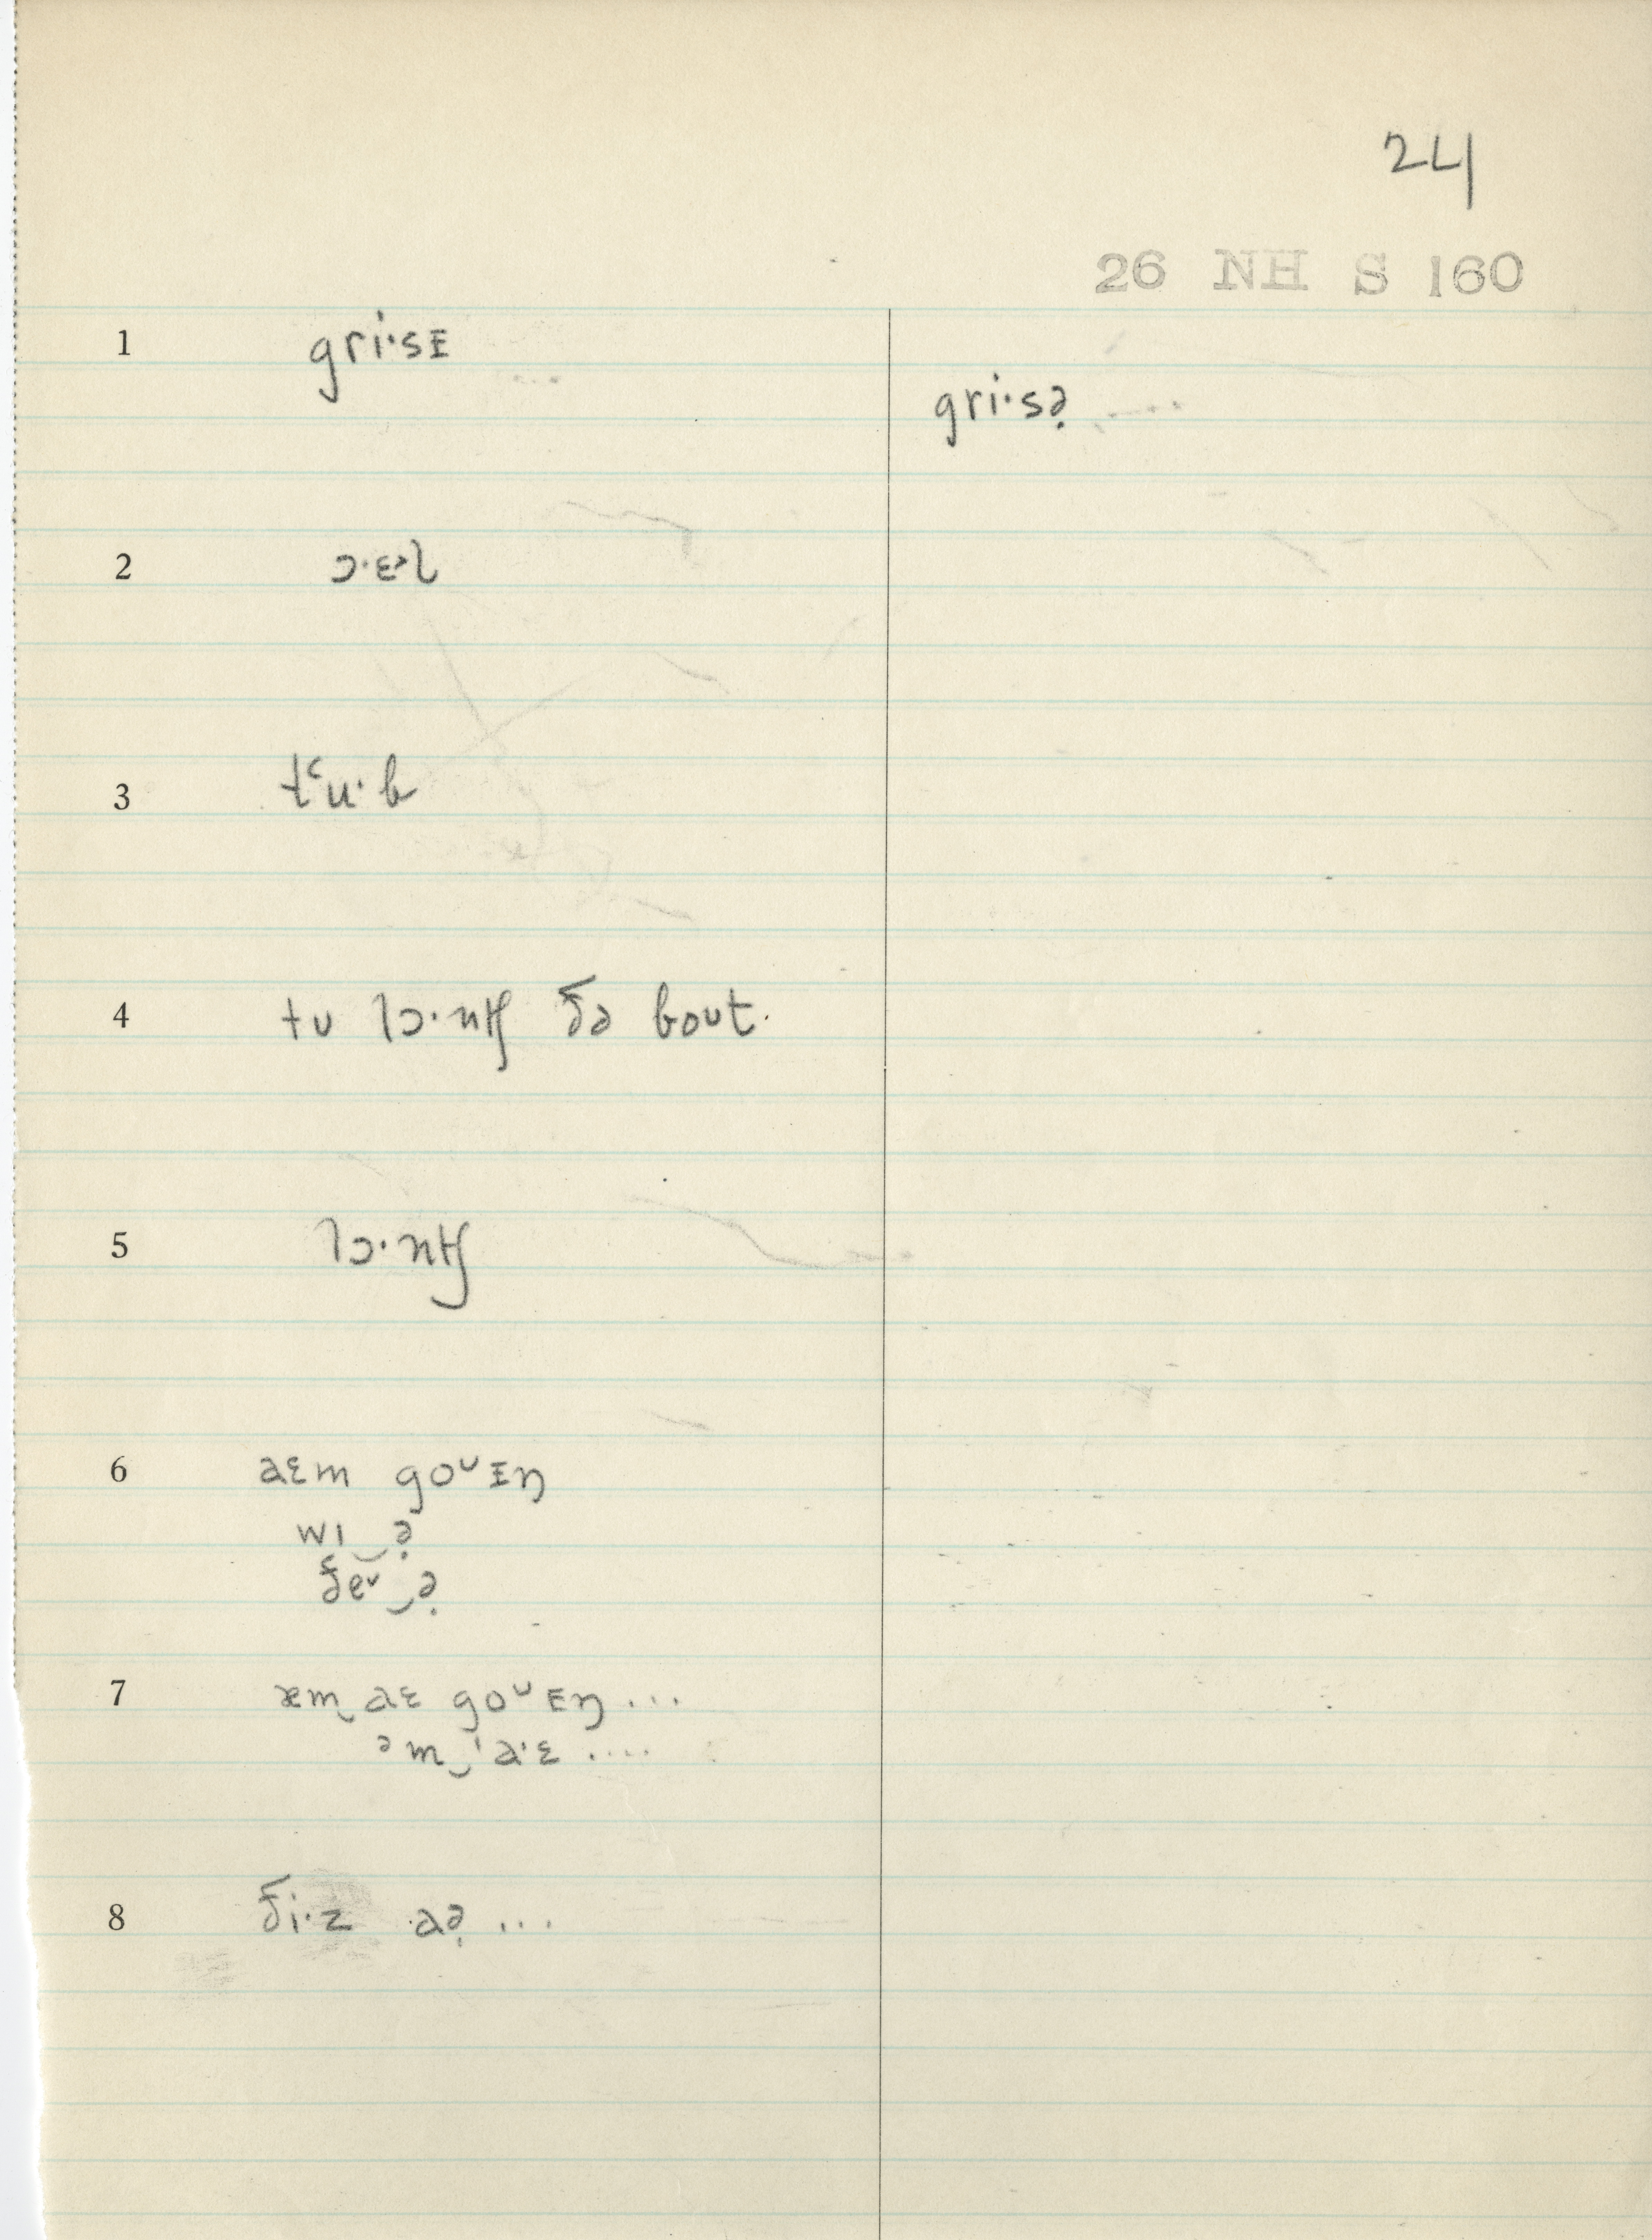 24
26 NH S 160
1 griˑsɪ
griˑsə̣
2 ɔˑɛᵊl
3 tʻuˑb
4 tu lɔˑntʃ ðə bout.
5 lɔˑntʃ
6 aɛm goᵘɪŋ
wɪ‿ə̣
ðeᵛ‿ə̣
7 æm‿aɛ goᵘɪŋ ...
ᵊm‿ˈaˑɛ ....
8 ðiˑz aə̣ ...